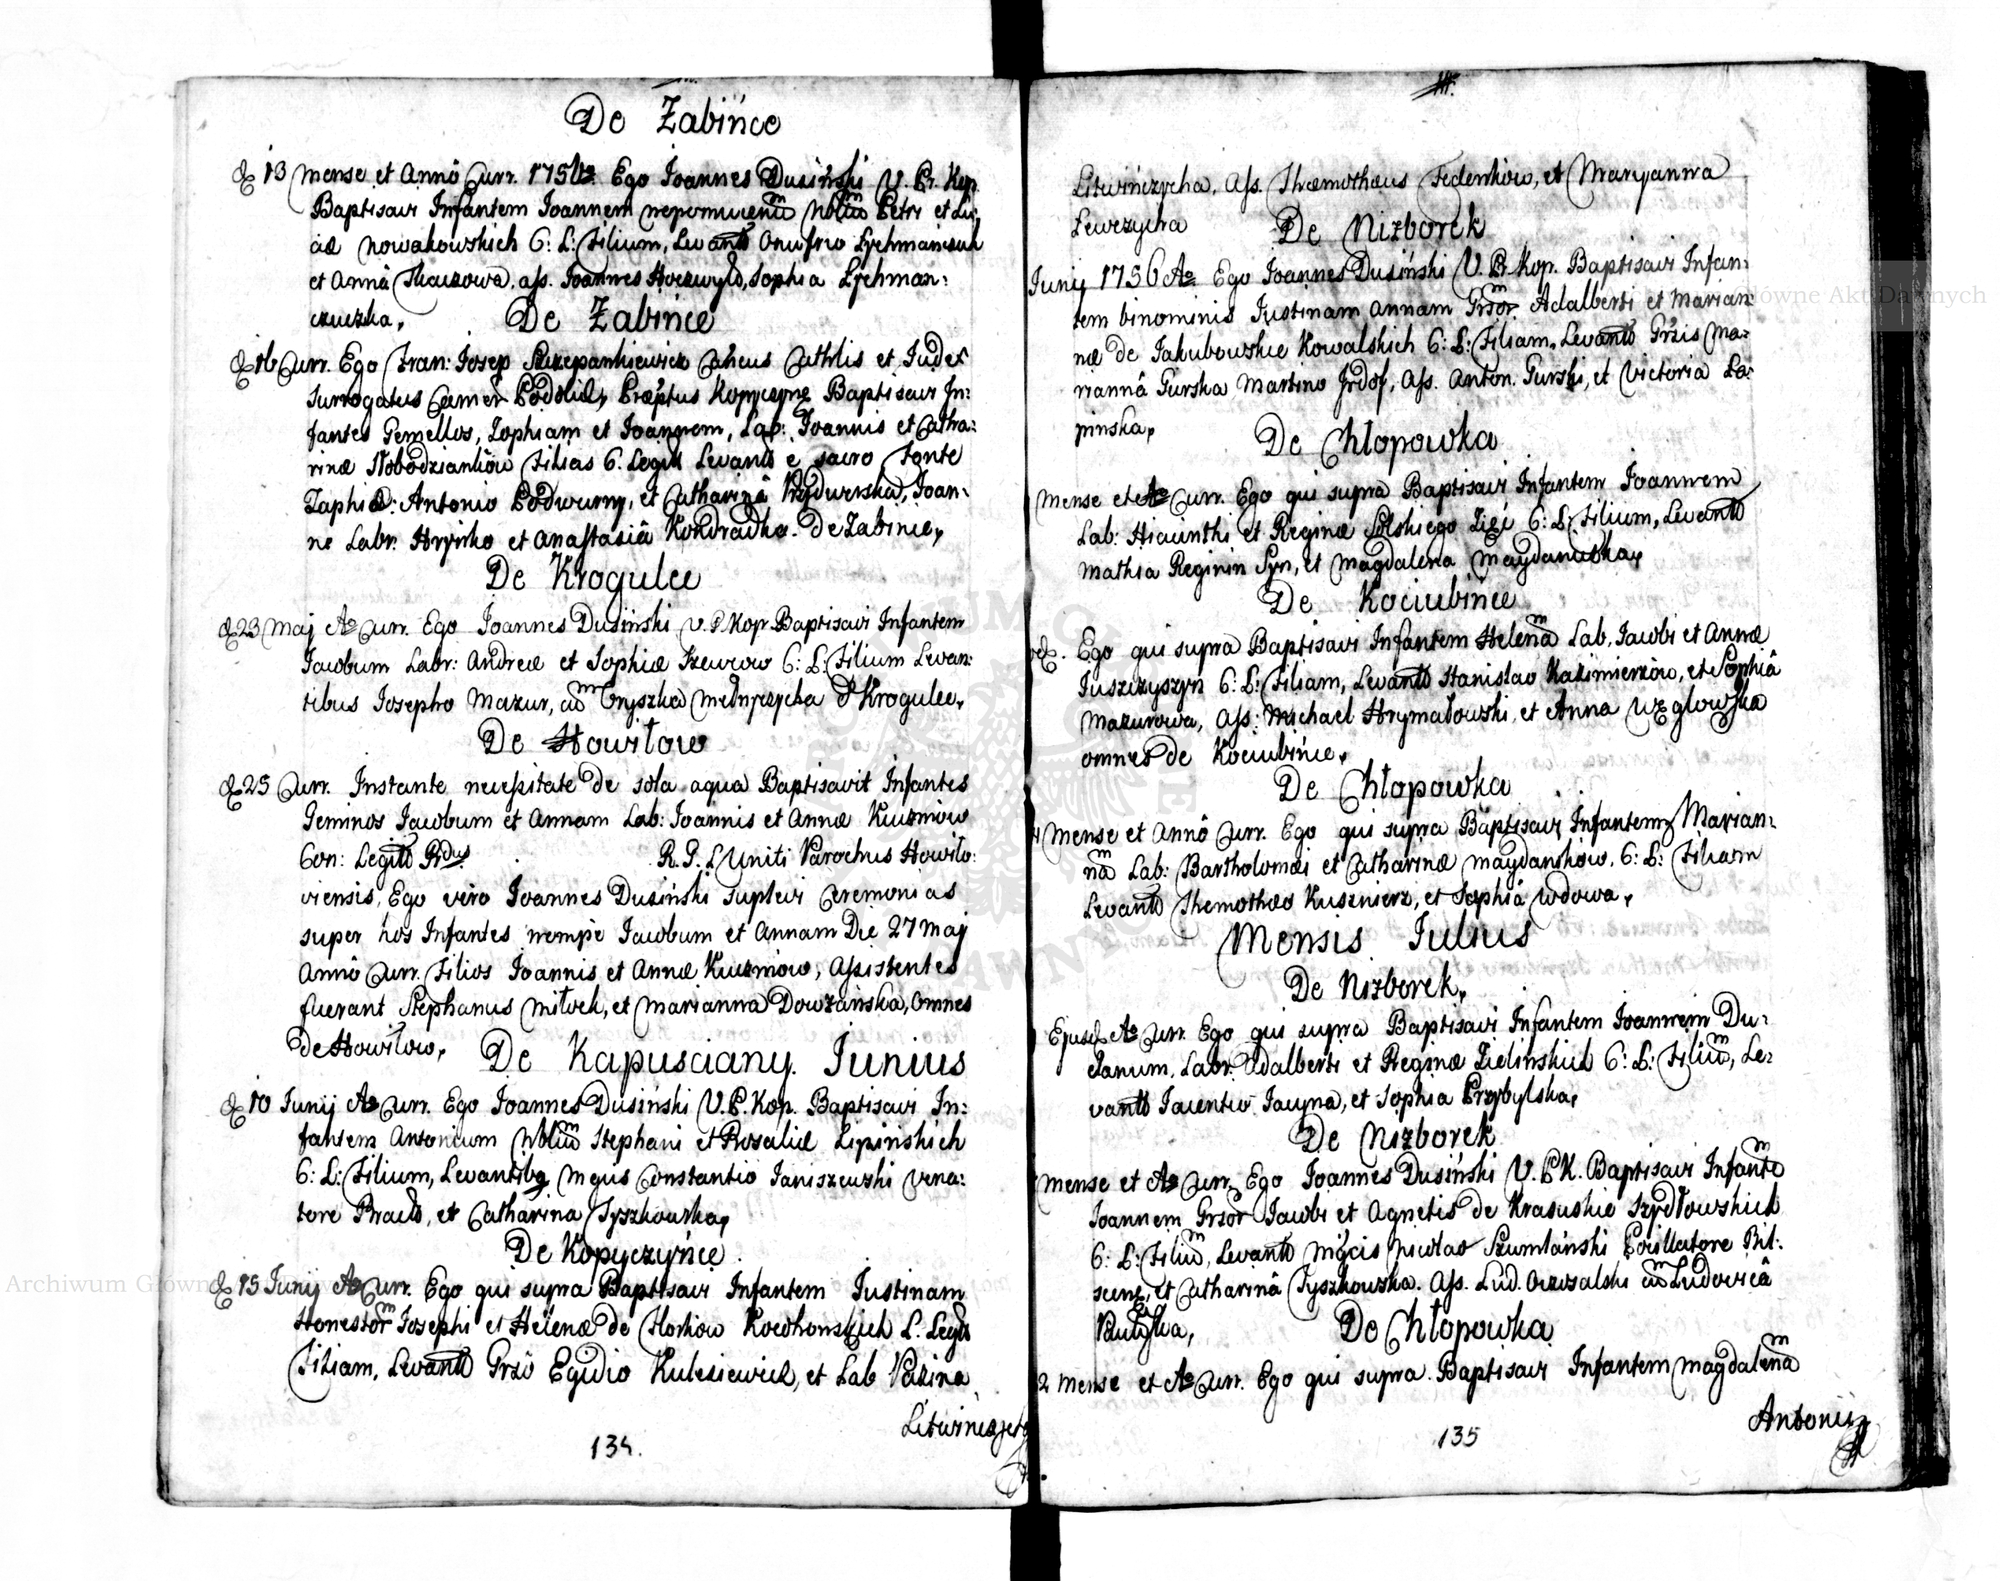 De Żabińce
D 13 Mense et Annô Curr. 1756to Ego Joannes Dusiński V. Pr. Kop.
Baptisavi Infantem Joannem nepomucenū Nbliū Petri et Lu-
ciæ Nowakowskich C: L: Filium, Levantb Onufrio
et Annâ Tkaczowa, ass. Joannes Sophia
czuczka,
De Żabińce
D 16 Curr. Ego Fran: Josep Szczepankiewicz Cathlis et Judex
Surrogatus Camer Præptus Kopyczyne Baptisavi In-
fantes Gemellos, Zophiam et Joannem, Lab: Joannis et Catha-
rinæ Słobodzianków Filias C. Legit Levantb e sacro Fonte
Zophiæ: Antonio Podwurny, et Catharinâ Joan-
ne Labr. Hryńko et Anastasiâ de Żabińce,
De Krogulec
D 23 Maj Ao Curr. Ego Joannes Dusiński V. P. Kop Baptisavi Infantem
Jacobum Labr: Andreæ et Sophiæ Szewców C: L: Filium Levan-
tibus Josepho Mazur, cū Oryszka d Krogulec,
De Howiłow
D 25 Curr. Instante necessitate de sola aqua Baptisavit Infantes
Geminos Jacobum et Annam Lab: Joannis et Annæ Kuzmiow
Con: Legitb Rdus R. G. L Uniti Parochus Howiło-
viensis, Ego vero Joannes Dusiński suplevi Ceremonias
super hos Infantes nempè Jacobum et Annam Die 27 Maj
Annô Curr. Filios Joannis et Annæ Kuzmiow, Assistentes
fuerant Stephanus Miłvek, et Marianna Dowżańska, Omnes
de Howiłow,
De Kapusciany. Junius
D 10 Junij Ao Curr. Ego Joannes Dusiński V. P. Kop. Baptisavi In-
fantem Antonium Nbliū Stephani et Rosaliæ Lipińskich
C: L: Filium, Levantibg Mgcis Constantio Janiszewski Vena-
tore et Catharina Tyszkowska,
De Kopyczyńce
D 15 Junij Ao Curr. Ego qui supra Baptisavi Infantem Justinam
Honestor Josephi et Helenæ de Horkow L. Legtb
Filiam, Levantb Grsô Egidio Kulesiewicz, et Lab
Litwińczycha
134.
Litwińczycha, Ass. Thæmothæus Fedenkow, et Maryanna
Lewczycha
De Nizborek
Junij 1756 Ao Ego Joannes Dusiński V. P. Kop. Baptisavi Infan-
tem binominis Justinam Annam Grsor Adalberti et Marian-
næ de Jakubowskie Kowalskich C: L: Filiam, Levantb Grsis Ma-
riannâ Gurska Martino Ass. Anton. Gurski, et Victoria La-
pinska,
De Chłopowka
Mense et Ao Curr. Ego qui supra Baptisavi Infantem Joannem
Lab: Hiacinthi et Reginæ C: L: Filium, Levantb
Mathia Reginin Syn, et Magdalena Maydaniuska,
De Kociubińce
Ego qui supra Baptisavi Infantem Helenā Lab. Jacobi et Annæ
Juszczyszyn C: L: Filiam, Levantb Stanislao Kazimierzow, et Sophiâ
Mazurowa, Ass: Michael Hrymałowski, et Anna
omnes de Kociubińce,
De Chłopowka
Mense et Annô Curr. Ego qui supra Baptisavi Infantem Marian-
nā Lab: Bartholomæi et Catharinæ Maydanikow, C: L: Filiam
Levantb Themothæo Kusznierz, et Sophiâ wdowa,
Mensis Julius
De Nizborek,
Ejusd Ao Curr. Ego qui supra Baptisavi Infantem Joannem Du-
clanum, Labr. Adalberti et Reginæ Zielińskich C: L: Filiū, Le-
vantb Jacyna, et Sophia Przybylska,
De Nizborek
Mense et Ao Curr, Ego Joannes Dusiński V. P K. Baptisavi Infantē
Joannem Grsor Jacobi et Agnetis de Krasuskie Szydłowskich
C: L: Filiū, Levantb Mgcis Nicolao Szumlański
et Catharinâ Tyszkowska. Ass. Lud. cū Ludovicâ
De Chłopowka
2 Mense et Ao Curr. Ego qui supra Baptisavi Infantem Magdalenā
Antonii
135
Archiwum Główne Akt Dawnych